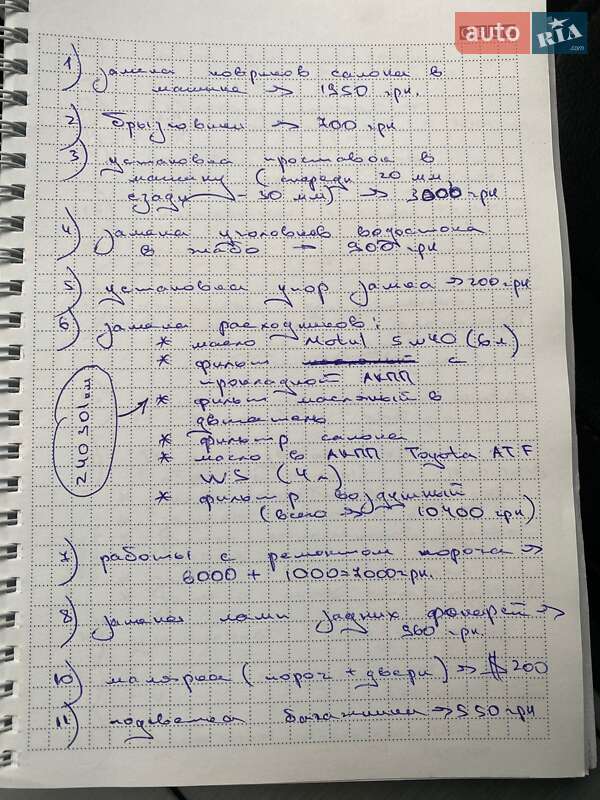 auto RIA .com
1) замена ковриков салона в
машине → 1950 грн.
2) брызговики → 700 грн
3) установка проставок в
машину (спереди 20 мм,
сзади - 30 мм) → 3000 грн
4) замена уголовков водостока
в жабо → 900 грн
5) установка упор замка → 200 грн
6) замена расходников:
* масло Motul 5w40 (6л)
* фильтр с
прокладкой АКПП
* фильт масляный в
двигатель
* фильтр салона
* масло в АКПП Toyota ATF
WS (4л)
* фильтр воздушный
(всего → 10400 грн)
240301км
7) работы с ремонтом порога →
6000 + 1000=7000грн.
8) замена ламп задних фонарей →
960 грн
10) малярка (порог + двери) → $ 200
11) подсветка багажника → 550 грн